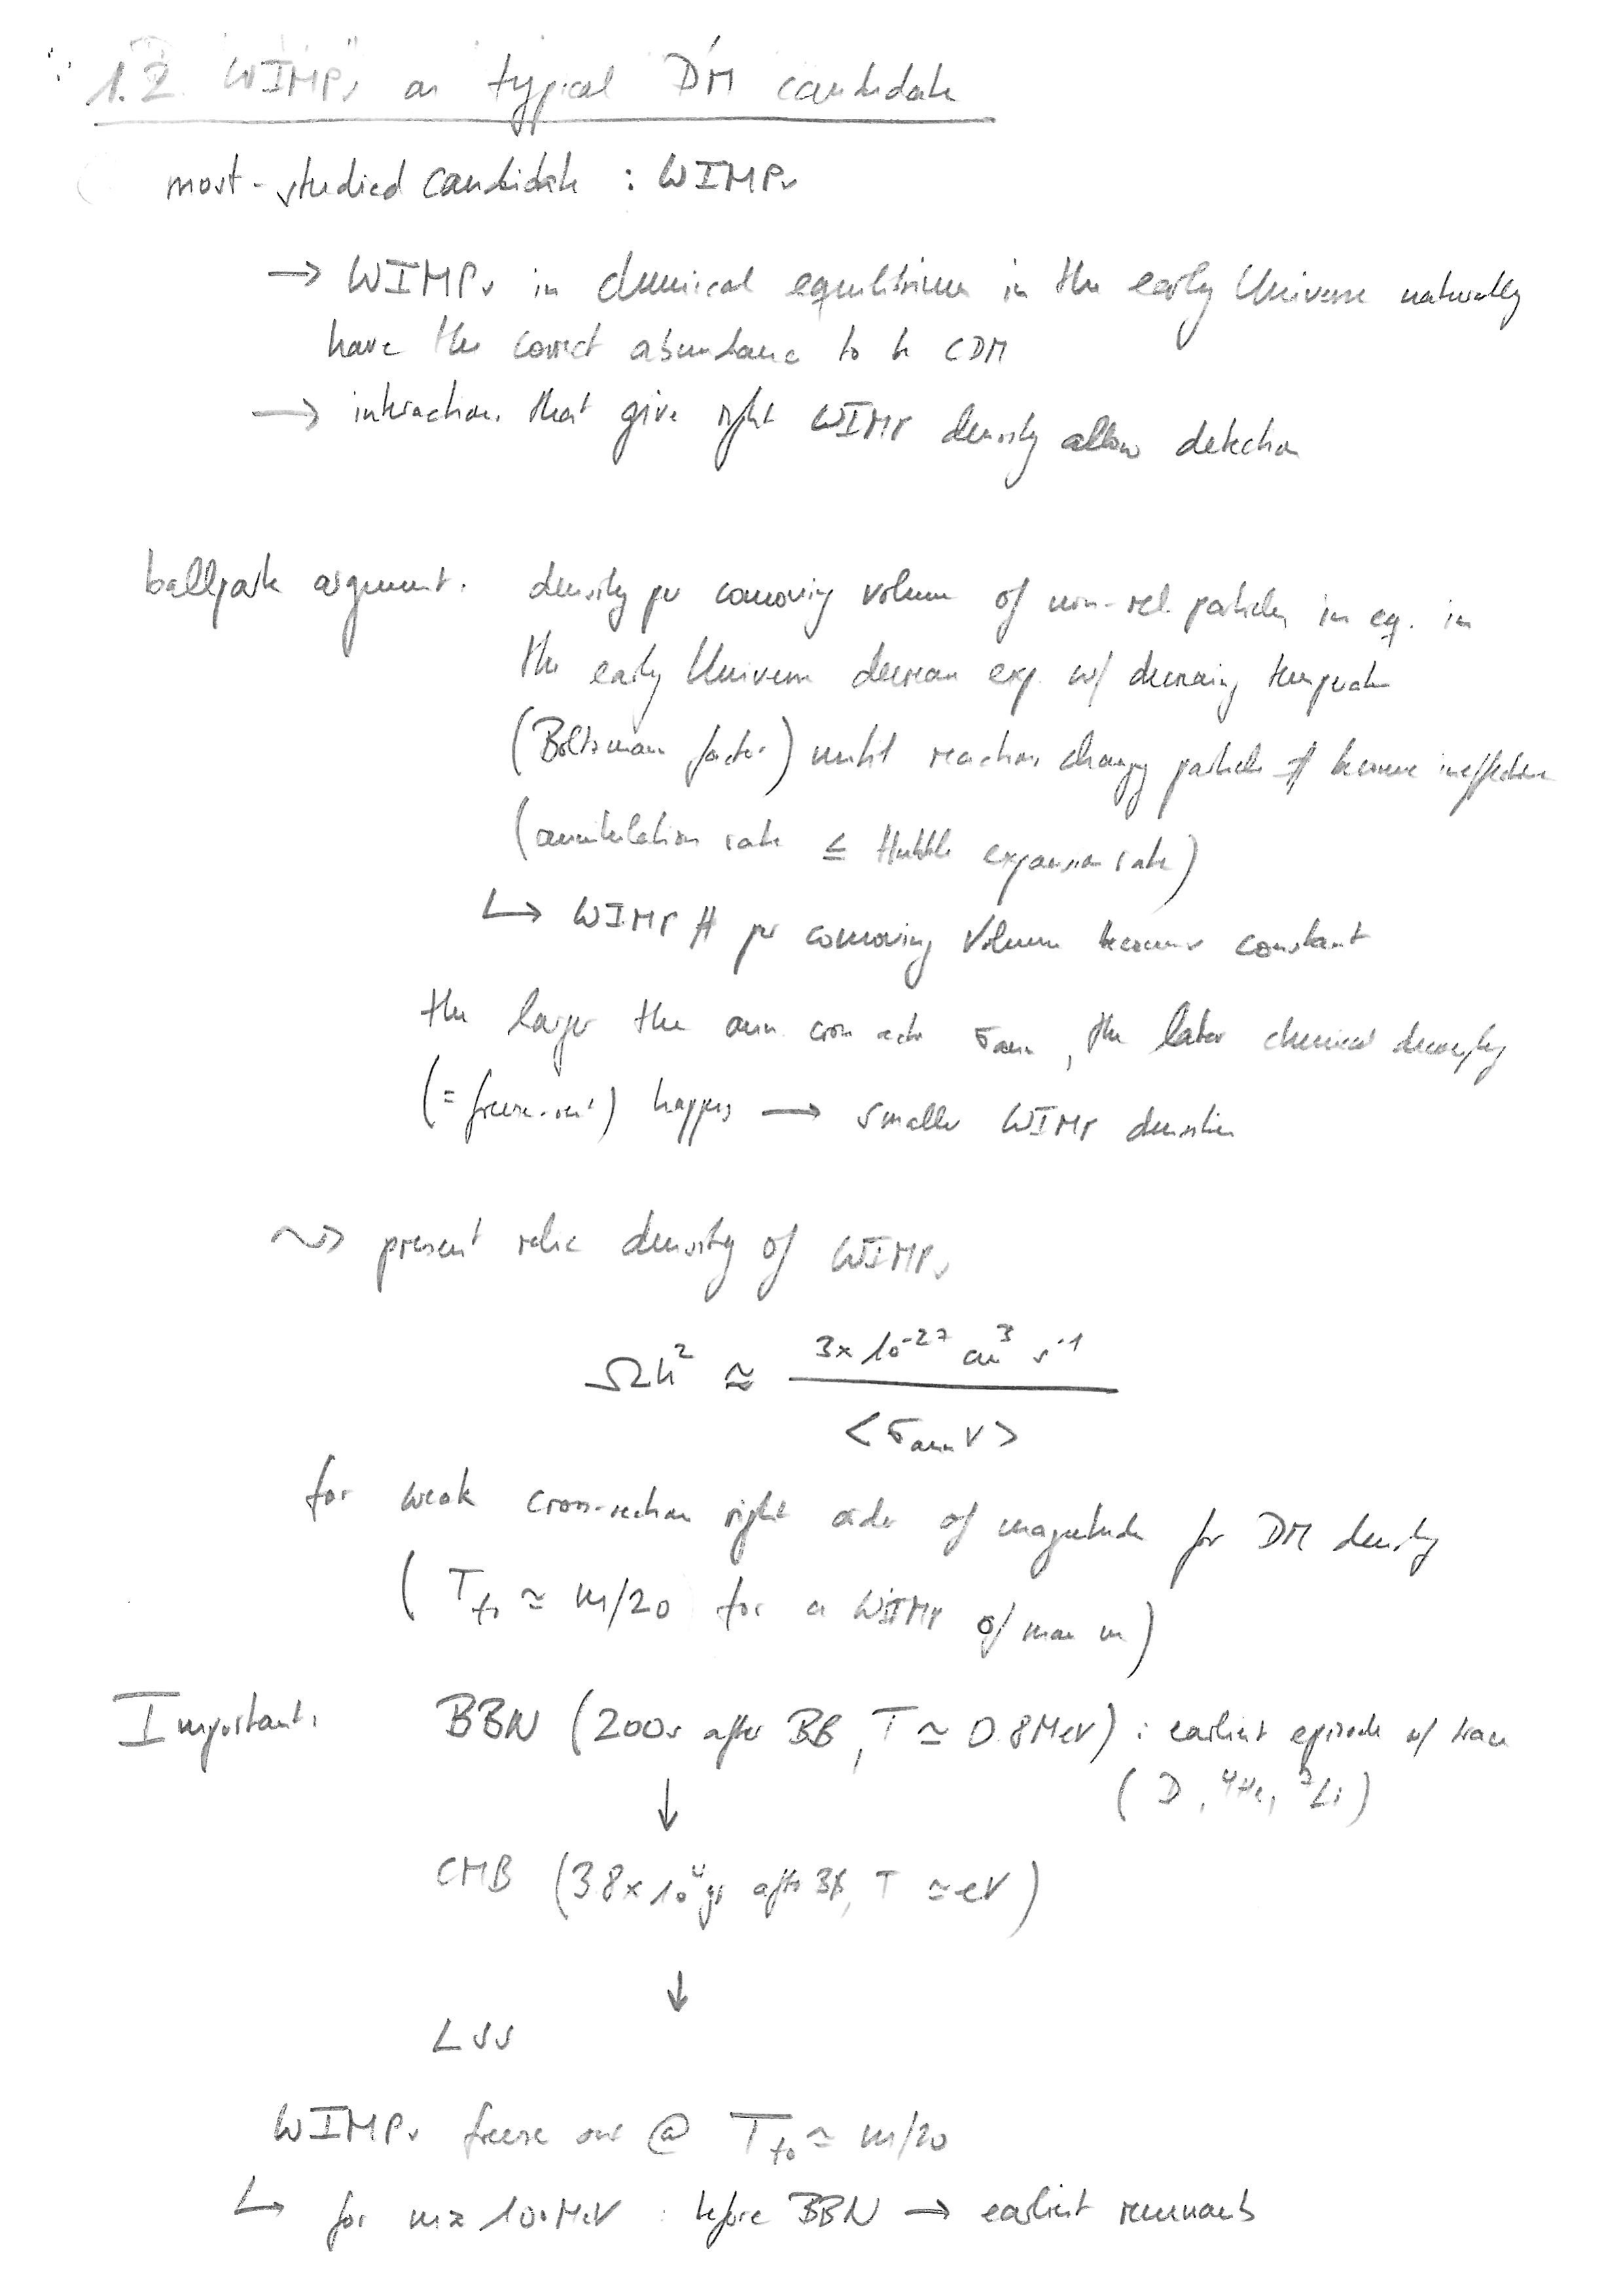 1.2 WIMPs as typical DM candidate
most-studied candidate : WIMPs
→ WIMPs in chemical equilibrium in the early Universe naturally
have the correct abundance to be CDM
→ interactions that give right WIMP density allow detection
ballpark argument: density per comoving volume of non-rel. particles in eq. in
the early Universe decreases exp. w/ decreasing temperature
(Boltzmann factor) until reactions changing particle # become ineffective
(annihilation rate ≤ Hubble expansion rate)
↳ WIMP # per comoving Volume becomes constant
the larger the ann. cross section σ_ann, the later chemical decoupling
(= freeze-out) happens → smaller WIMP densities
⤳ present relic density of WIMPs
Ωh² ≅ 3×10⁻²⁷ cm³ s⁻¹ / <σ_ann v>
for weak cross-section right order of magnitude for DM density
(T_fo ≃ m/20 for a WIMP of mass m)
Important: BBN (200s after BB, T ≃ 0.8 MeV) : earliest episode w/ trace
(D, ⁴He, ⁷Li)
↓
CMB (38×10⁴ yrs after BB, T ≃ eV)
↓
LSS
WIMPs freeze out @ T_fo ≃ m/20
↳ for m ≥ 100 MeV : before BBN → earliest remnants